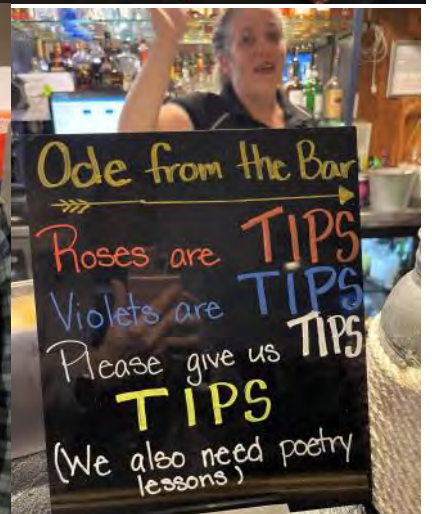 Ode from the Bar
Roses are TIPS
Violets are TIPS
Please give us TIPS
TIPS
(We also need poetry
lessons)